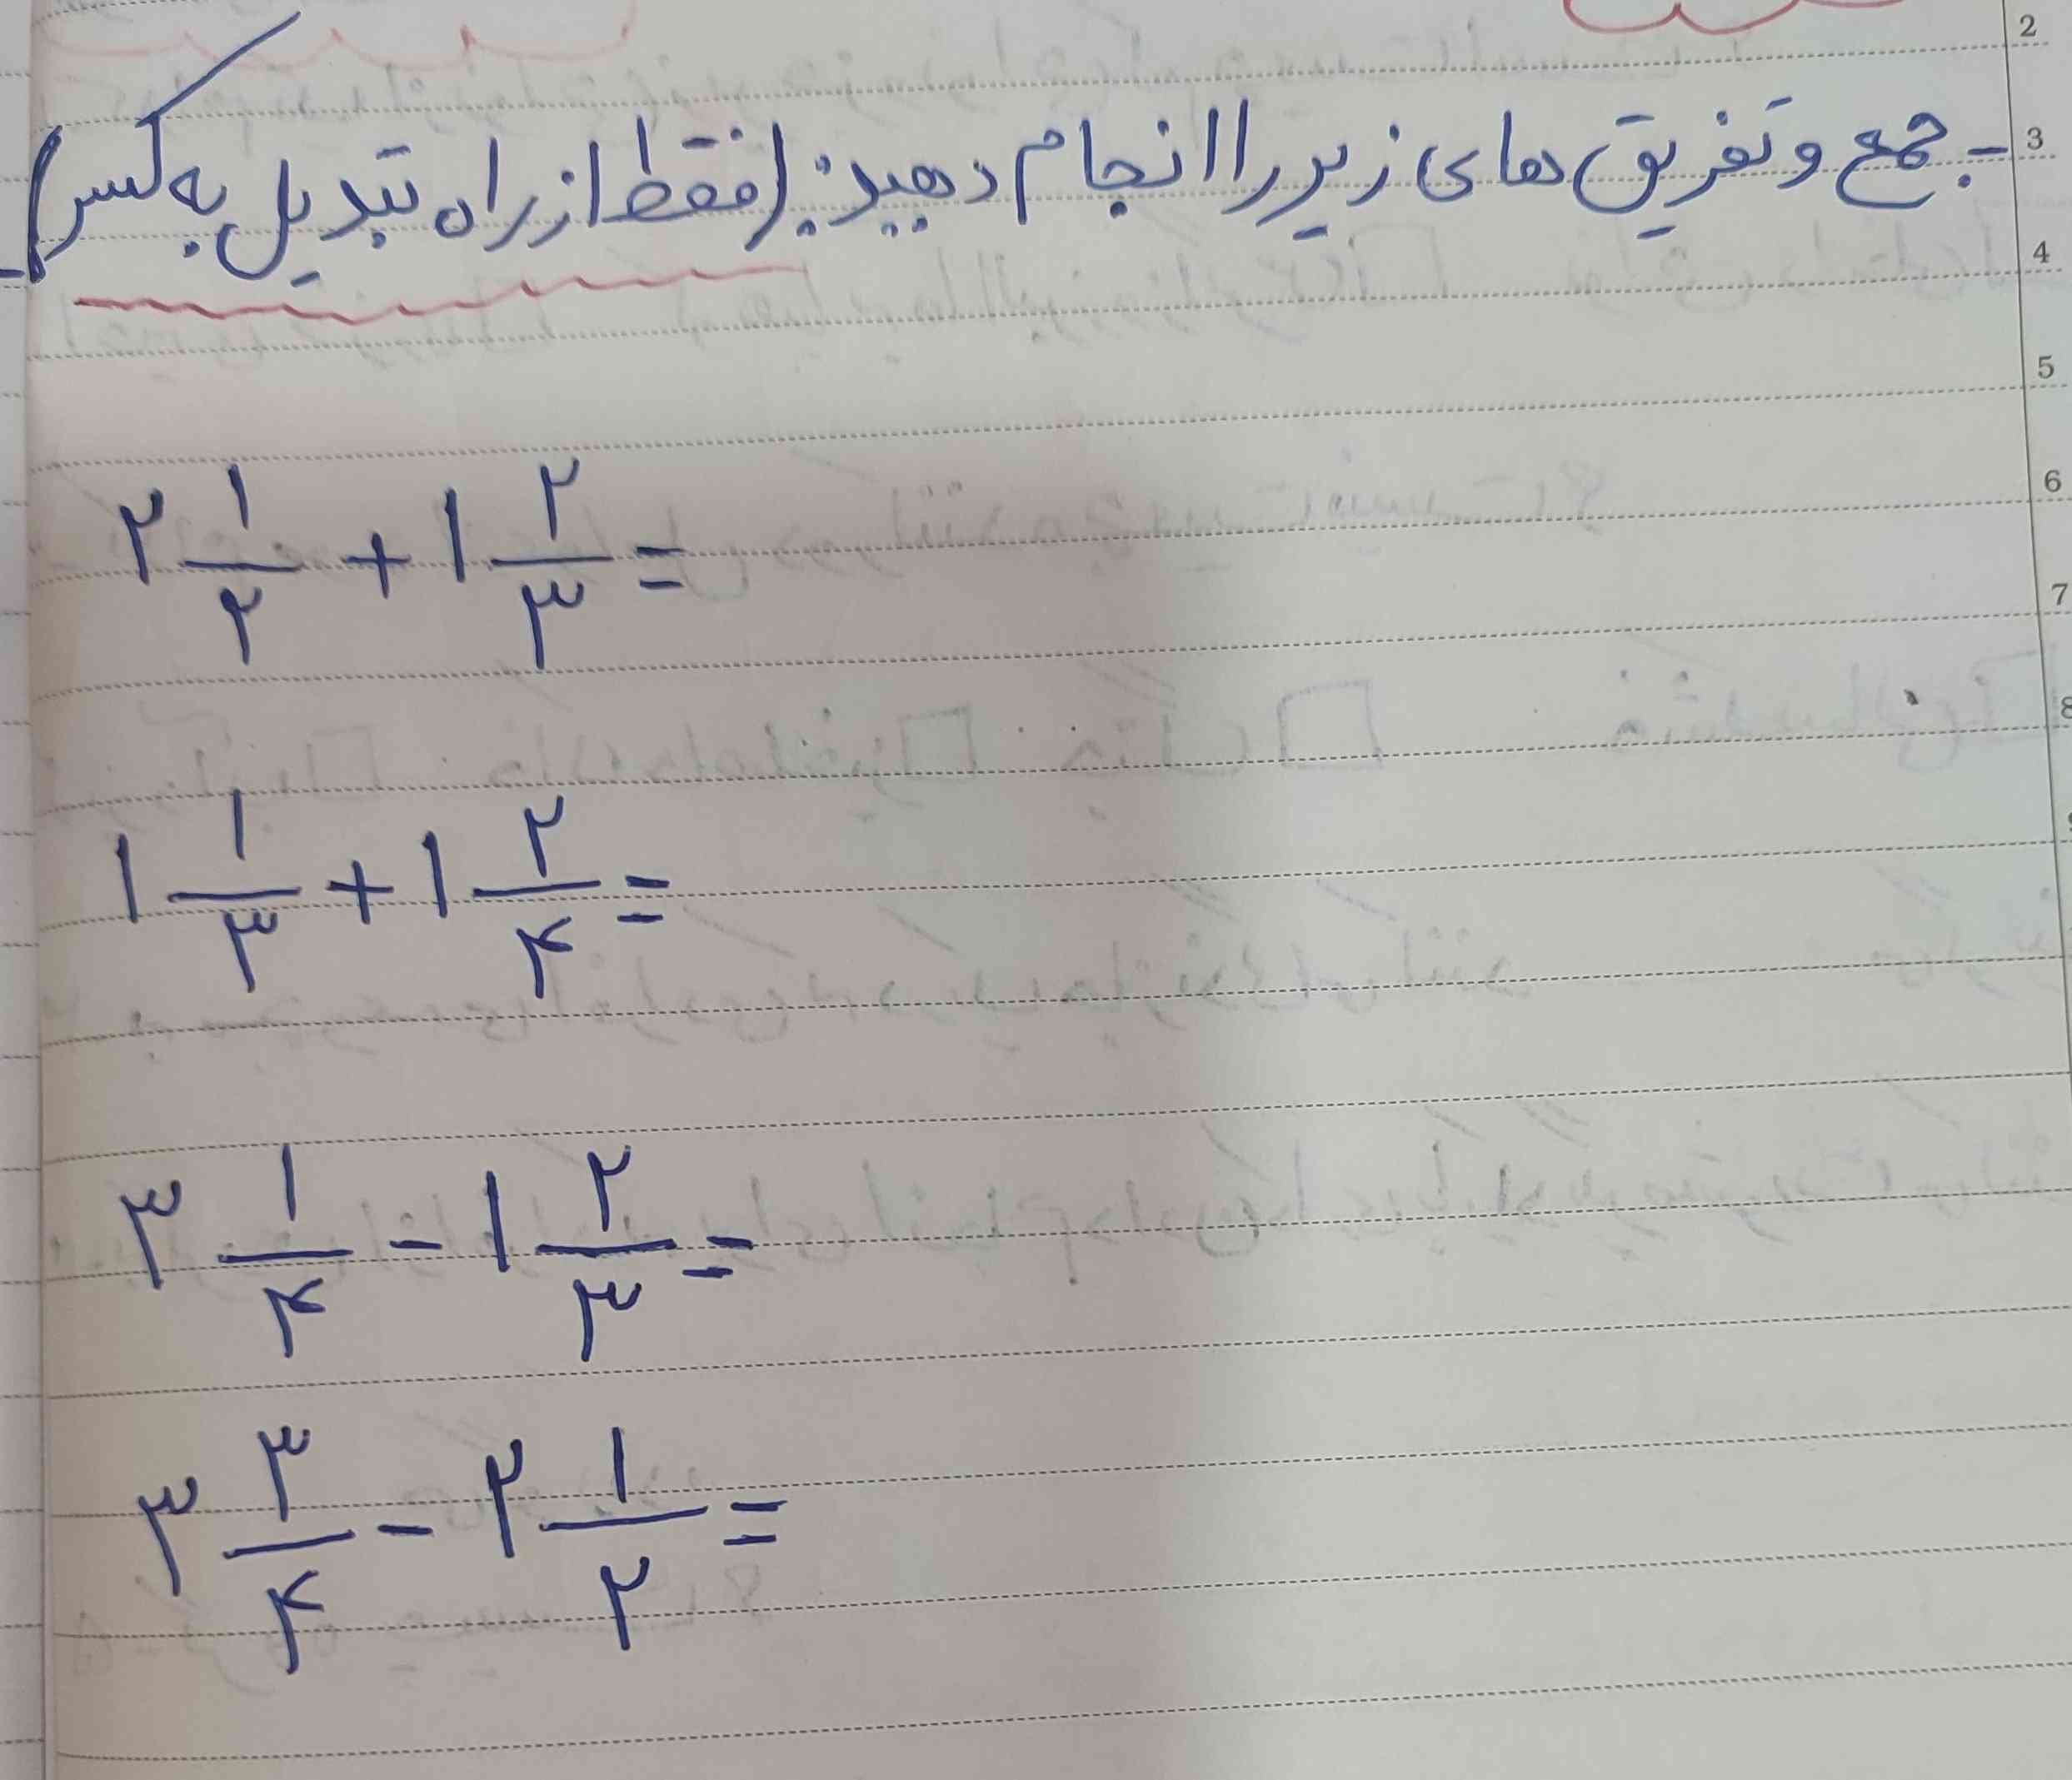 - جمع و تفریق های زیر را انجام دهید: (فقط از راه تبدیل به کسر)
۲ ۱/۲ + ۱ ۲/۳ =
۱ ۱/۳ + ۱ ۲/۴ =
۳ ۱/۴ - ۱ ۲/۳ =
۳ ۳/۴ - ۲ ۱/۲ =
2
3
4
5
6
7
8